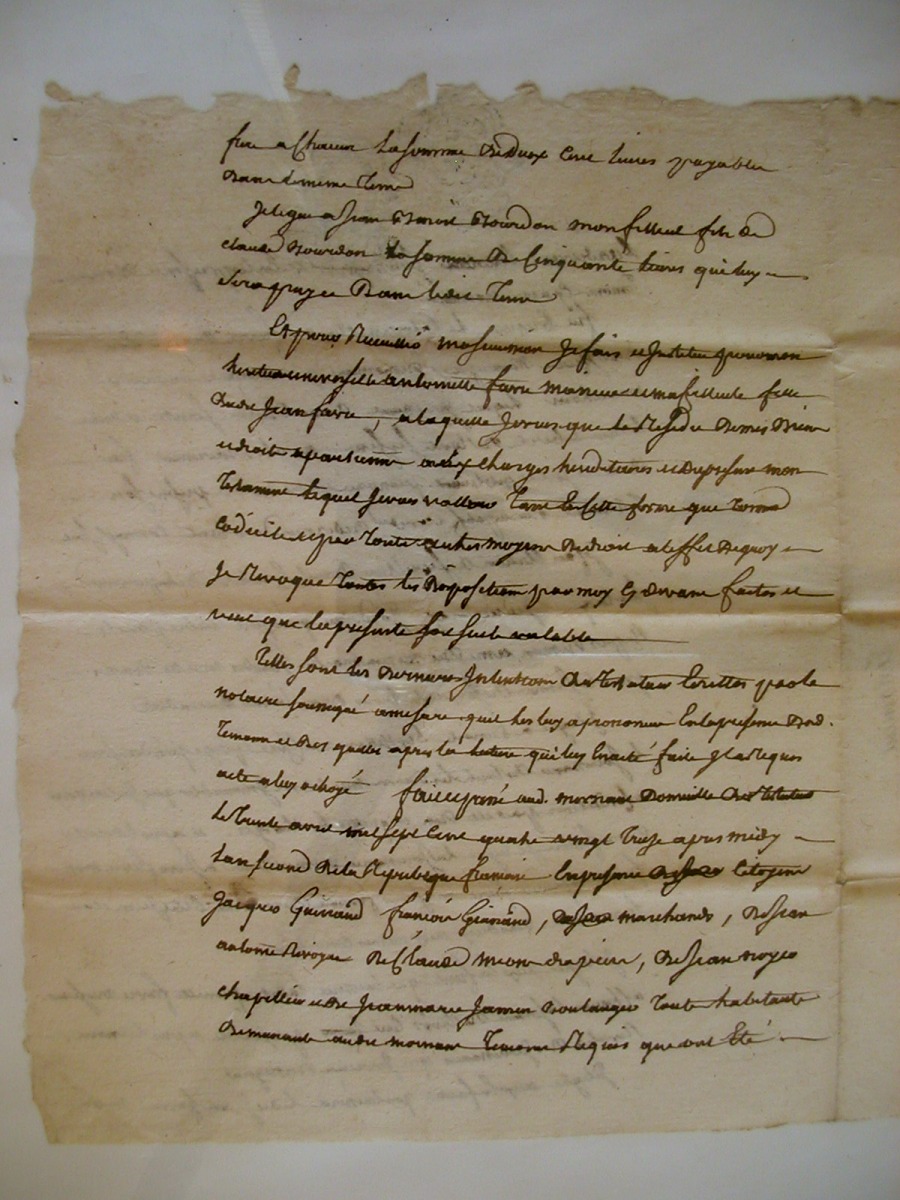 a Chacun La somme de deux Cent livres payable
Dans le meme Terme
Je legue a Jean Benoit Bourdon mon filleul fils de
claude Bourdon La somme De Cinquante livres qui luy
Sera payée Dans ledit Terme
Et pour Recueillir ma succession Je fais et Institue pour mon
heritiere universelle antoinette favre ma niece et ma filleule fille
Dudit Jean favre, a laquelle Je veux que le Residu De mes Biens
et droits apartienne aux Charges hereditaires et De presser mon
Testament lequel Je veux valloir Tant En Cette forme que Comme
Codicile et par Toute autre moyen De droit a l'effet De quoy
Je Revoque Toutes les Dispositions par moy Cy devant faites et
veux que la presente soit seule valable
Telles sont les dernieres Intentions du Testateur Ecrittes par le
notaire soussigné a mesure quil les luy a prononcée En la presence Desd.
Temoins et Des quelles apres la lecture qui luy En a été faite Il a Requis
acte a luy octroyé fait et passé aud. mornant Domicille du Testateur
Le Trente avril mil sept Cent quatre vingt Treize apres midy
Lan second De la Republique francaise En presence des Citoyens
Jacques Guinand francois Guinand, marchands, De Jean
antoine De Claude drapier, De Jean noyer
chapellier et De Jean marie Jamen Boulanger Touts habitants
Demeurants audit mornant Temoins Requis qui ont Eté